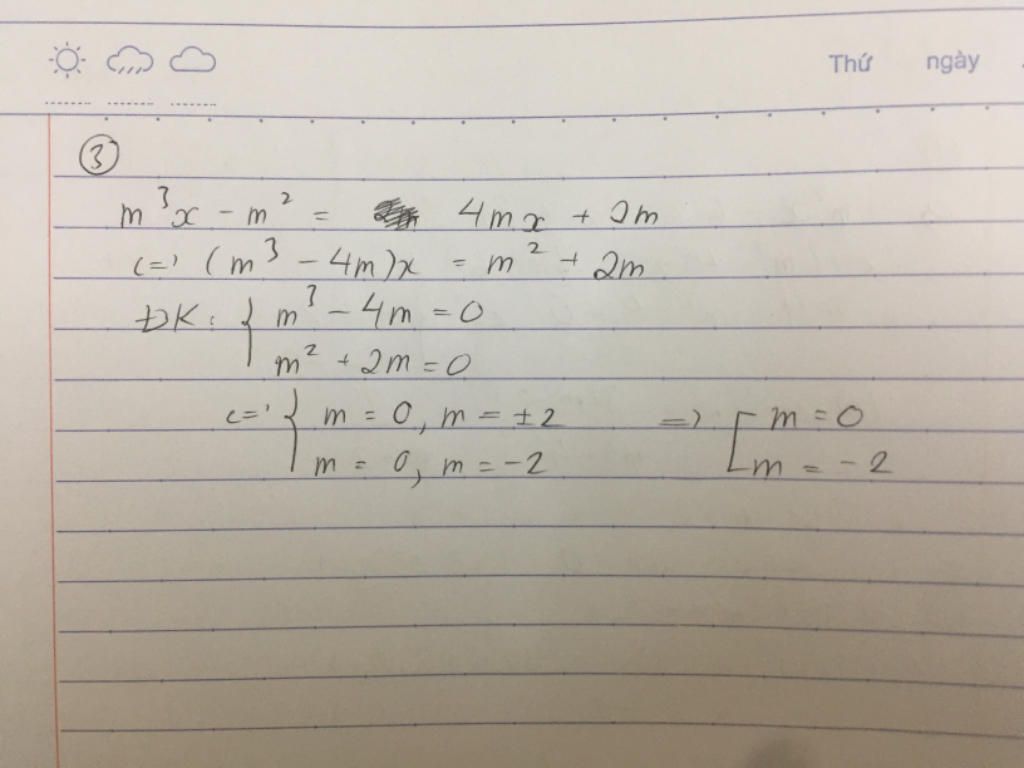 Thứ ngày
③
m³x - m² = 4mx + 2m
<=> (m³ - 4m)x = m² + 2m
ĐK: { m³ - 4m = 0
m² + 2m = 0
<=> { m = 0, m = ±2 => [ m = 0
m = 0, m = -2 m = -2